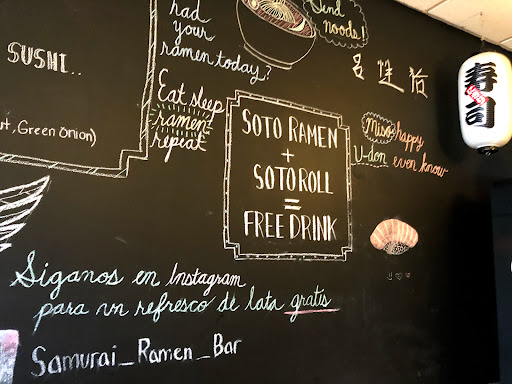 SUSHI..
t, Green Onion)
had
your
ramen today?
Send
noods!
Eat sleep
ramen
repeat
SOTO RAMEN
+
SOTO ROLL
=
FREE DRINK
寿司
Miso happy
U-don even know
Siganos en Instagram
para un refresco de lata gratis
Samurai_Ramen_Bar